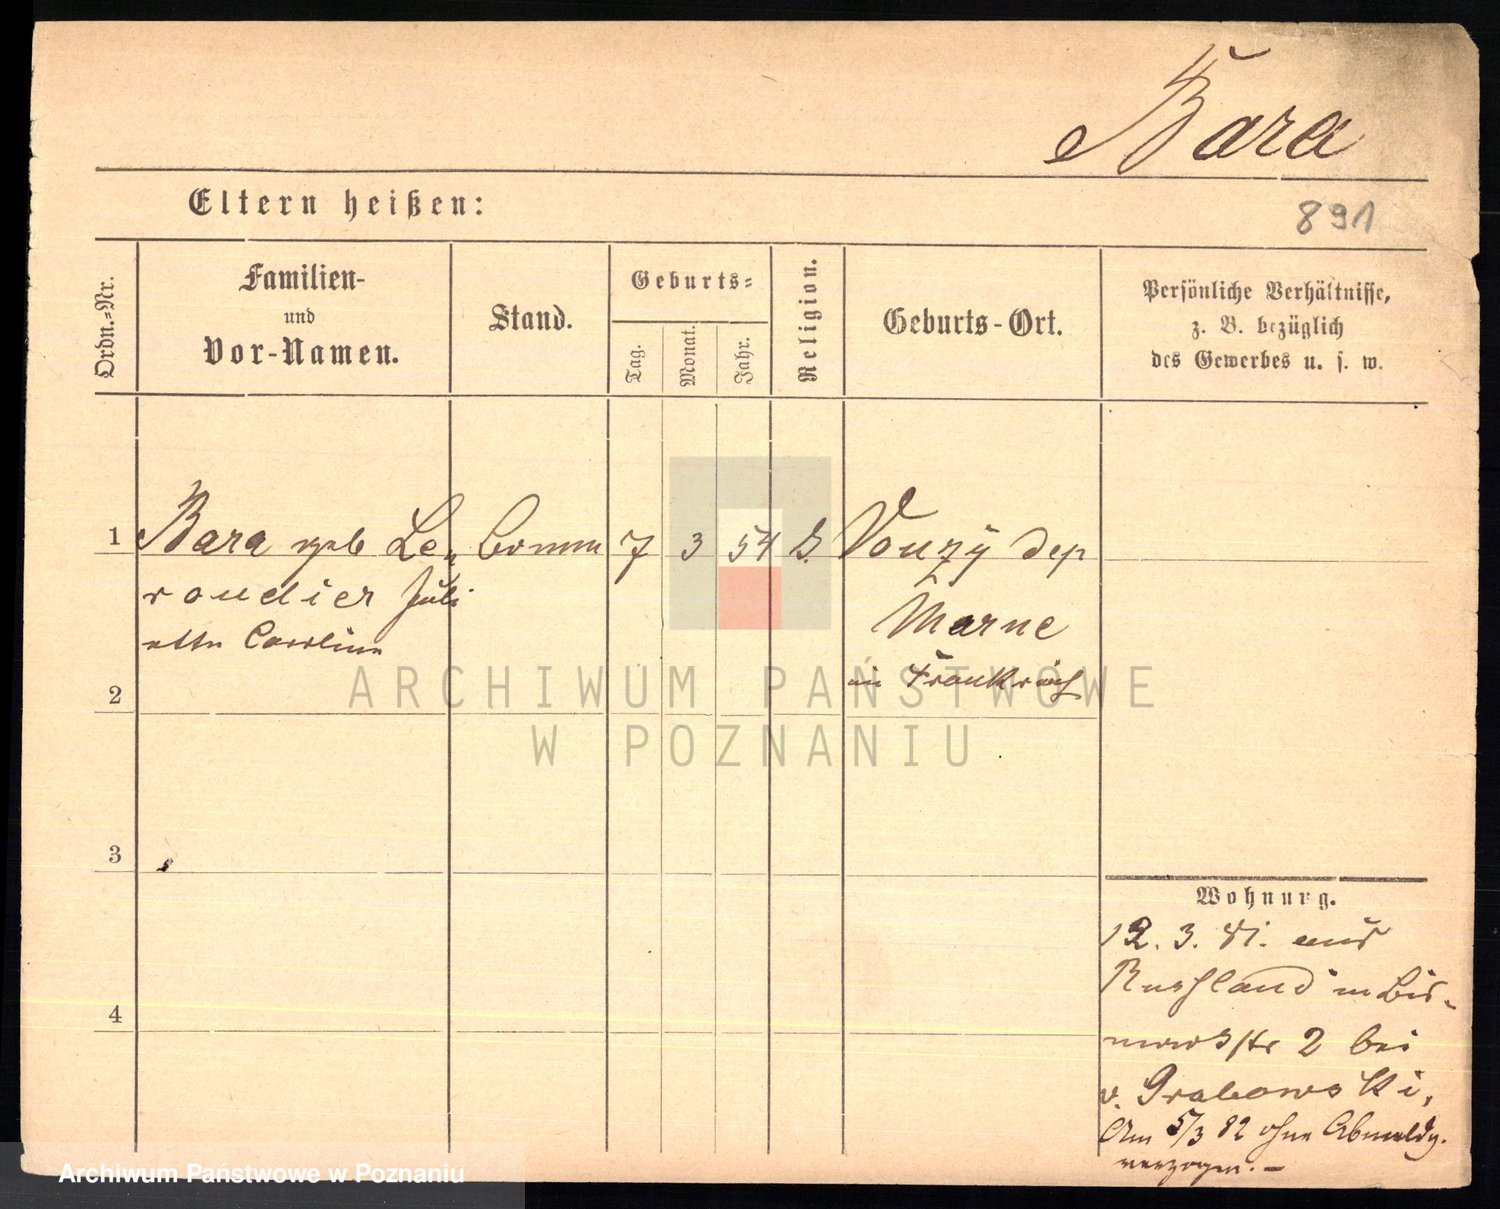 Bara
Eltern heißen:
891
Ordn.=Nr.
Familien-
und
Vor-Namen.
Stand.
Geburts=
Tag.
Monat.
Jahr.
Religion.
Geburts-Ort.
Persönliche Verhältnisse,
z. B. bezüglich
des Gewerbes u. s. w.
1 Bara geb Le, 7 3 54 Vouzy dep
roudier Juli
ette Caroline
Marne
in Frankreich
2
3
4
ARCHIWUM PAŃSTWOWE
W POZNANIU
Wohnung.
12. 3. 81. aus
Russland in Bis-
markstr 2 bei
v. Grabowski,
Am 5/3 82 ohne Abmeldg.
verzogen. –
Archiwum Państwowe w Poznaniu